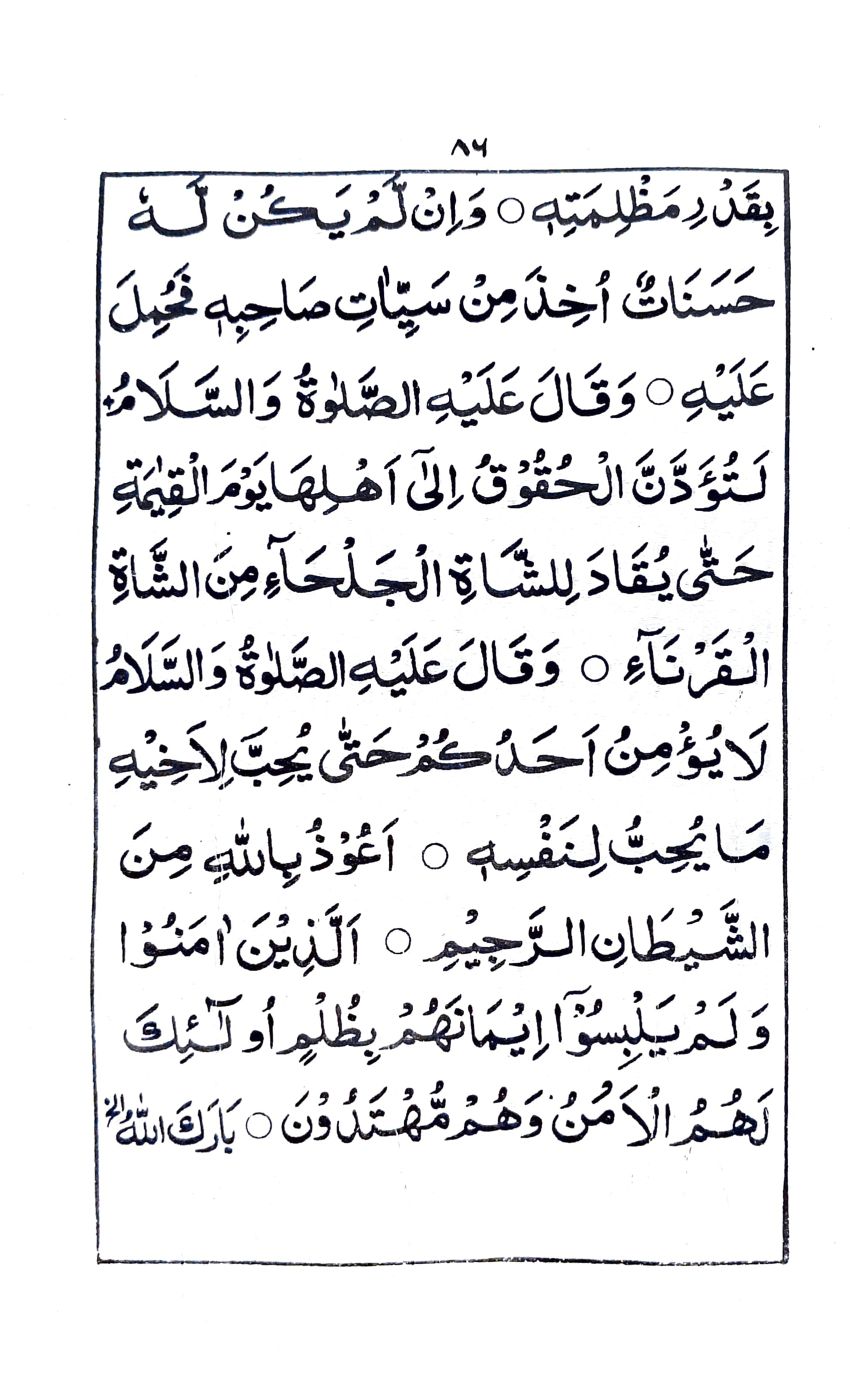 ۸۶
بِقَدْرِ مَظْلِمَتِهٖ ○ وَاِنْ لَّمْ يَكُنْ لَّهٗ
حَسَنَاتٌ اُخِذَ مِنْ سَيِّاٰتِ صَاحِبِهٖ فَحُمِلَ
عَلَيْهِ ○ وَقَالَ عَلَيْهِ الصَّلٰوةُ وَالسَّلَامُ
لَتُؤَدَّنَّ الْحُقُوْقُ اِلٰٓى اَهْلِهَا يَوْمَ الْقِيٰمَةِ
حَتّٰى يُقَادَ لِلشَّاةِ الْجَلْحَآءِ مِنَ الشَّاةِ
الْقَرْنَآءِ ○ وَقَالَ عَلَيْهِ الصَّلٰوةُ وَالسَّلَامُ
لَا يُؤْمِنُ اَحَدُكُمْ حَتّٰى يُحِبَّ لِاَخِيْهِ
مَا يُحِبُّ لِنَفْسِهٖ ○ اَعُوْذُ بِاللّٰهِ مِنَ
الشَّيْطَانِ الرَّجِيْمِ ○ اَلَّذِيْنَ اٰمَنُوْا
وَلَمْ يَلْبِسُوْٓا اِيْمَانَهُمْ بِظُلْمٍ اُولٰٓئِكَ
لَهُمُ الْاَمْنُ وَهُمْ مُّهْتَدُوْنَ ○ بَارَكَ اللّٰهُ الخ